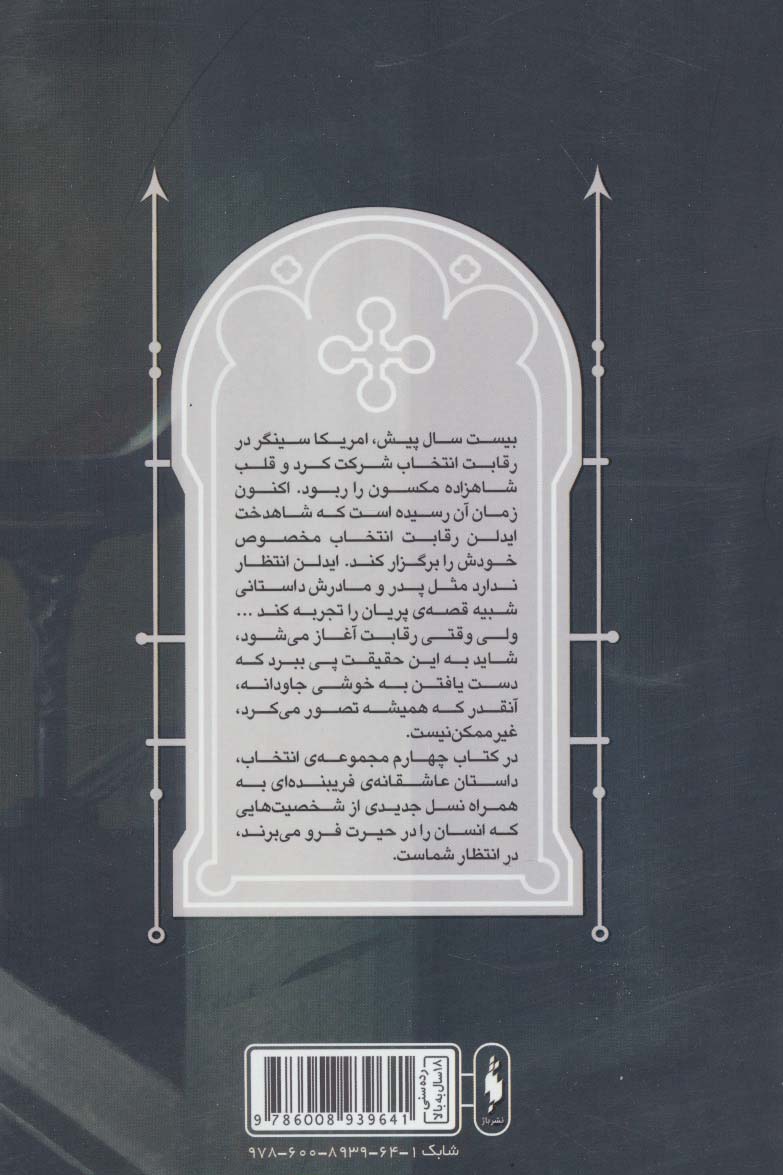 بیست سال پیش، امریکا سینگر در
رقابت انتخاب شرکت کرد و قلب
شاهزاده مکسون را ربود. اکنون
زمان آن رسیده است که شاهدخت
ایدلن رقابت انتخاب مخصوص
خودش را برگزار کند. ایدلن انتظار
ندارد مثل پدر و مادرش داستانی
شبیه قصه‌ی پریان را تجربه کند ...
ولی وقتی رقابت آغاز می‌شود،
شاید به این حقیقت پی ببرد که
دست یافتن به خوشی جاودانه،
آنقدر که همیشه تصور می‌کرد،
غیرممکن نیست.
در کتاب چهارم مجموعه‌ی انتخاب،
داستان عاشقانه‌ی فریبنده‌ای به
همراه نسل جدیدی از شخصیت‌هایی
که انسان را در حیرت فرو می‌برند،
در انتظار شماست.
رده سنی
۱۸ سال به بالا
نشر باژ
9 786008 939641
شابک ۱-۶۴-۸۹۳۹-۶۰۰-۹۷۸